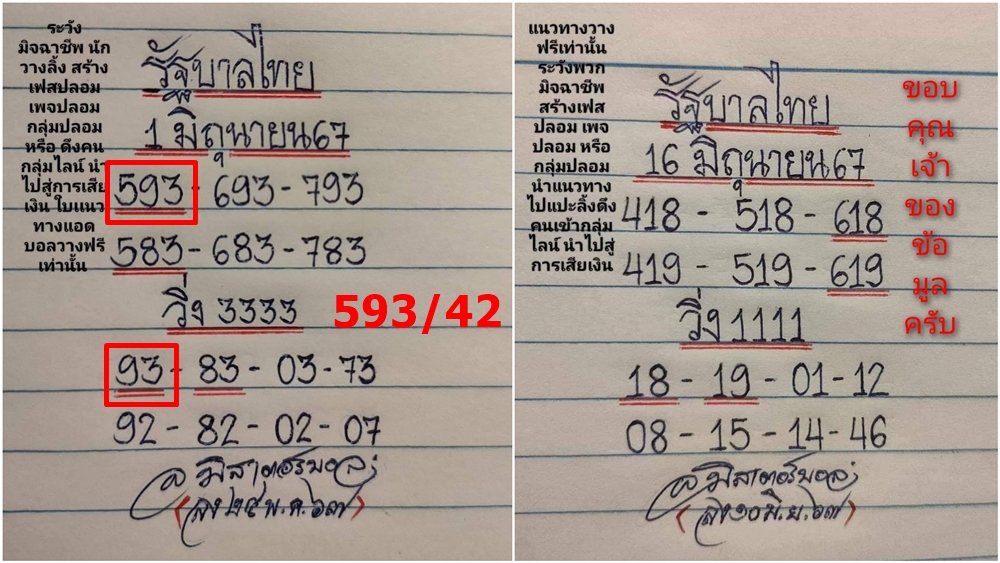 ระวัง
มิจฉาชีพ นัก
วางลิ้ง สร้าง
เฟสปลอม
เพจปลอม
กลุ่มปลอม
หรือ ดึงคน
กลุ่มไลน์ นำ
ไปสู่การเสีย
เงิน ใบแนว
ทางแอด
บอลวางฟรี
เท่านั้น
รัฐบาลไทย
1 มิถุนายน67
593 - 693 - 793
583 - 683 - 783
วิ่ง 3333
593/42
93 - 83 - 03 - 73
92 - 82 - 02 - 07
แนวทางวาง
ฟรีเท่านั้น
ระวังพวก
มิจฉาชีพ
สร้างเฟส
ปลอม เพจ
ปลอม หรือ
กลุ่มปลอม
นำแนวทาง
ไปแปะลิ้งดึง
คนเข้ากลุ่ม
ไลน์ นำไปสู่
การเสียเงิน
รัฐบาลไทย
16 มิถุนายน67
418 - 518 - 618
419 - 519 - 619
วิ่ง 1111
18 - 19 - 01 - 12
08 - 15 - 14 - 46
ขอบ
คุณ
เจ้า
ของ
ข้อ
มูล
ครับ